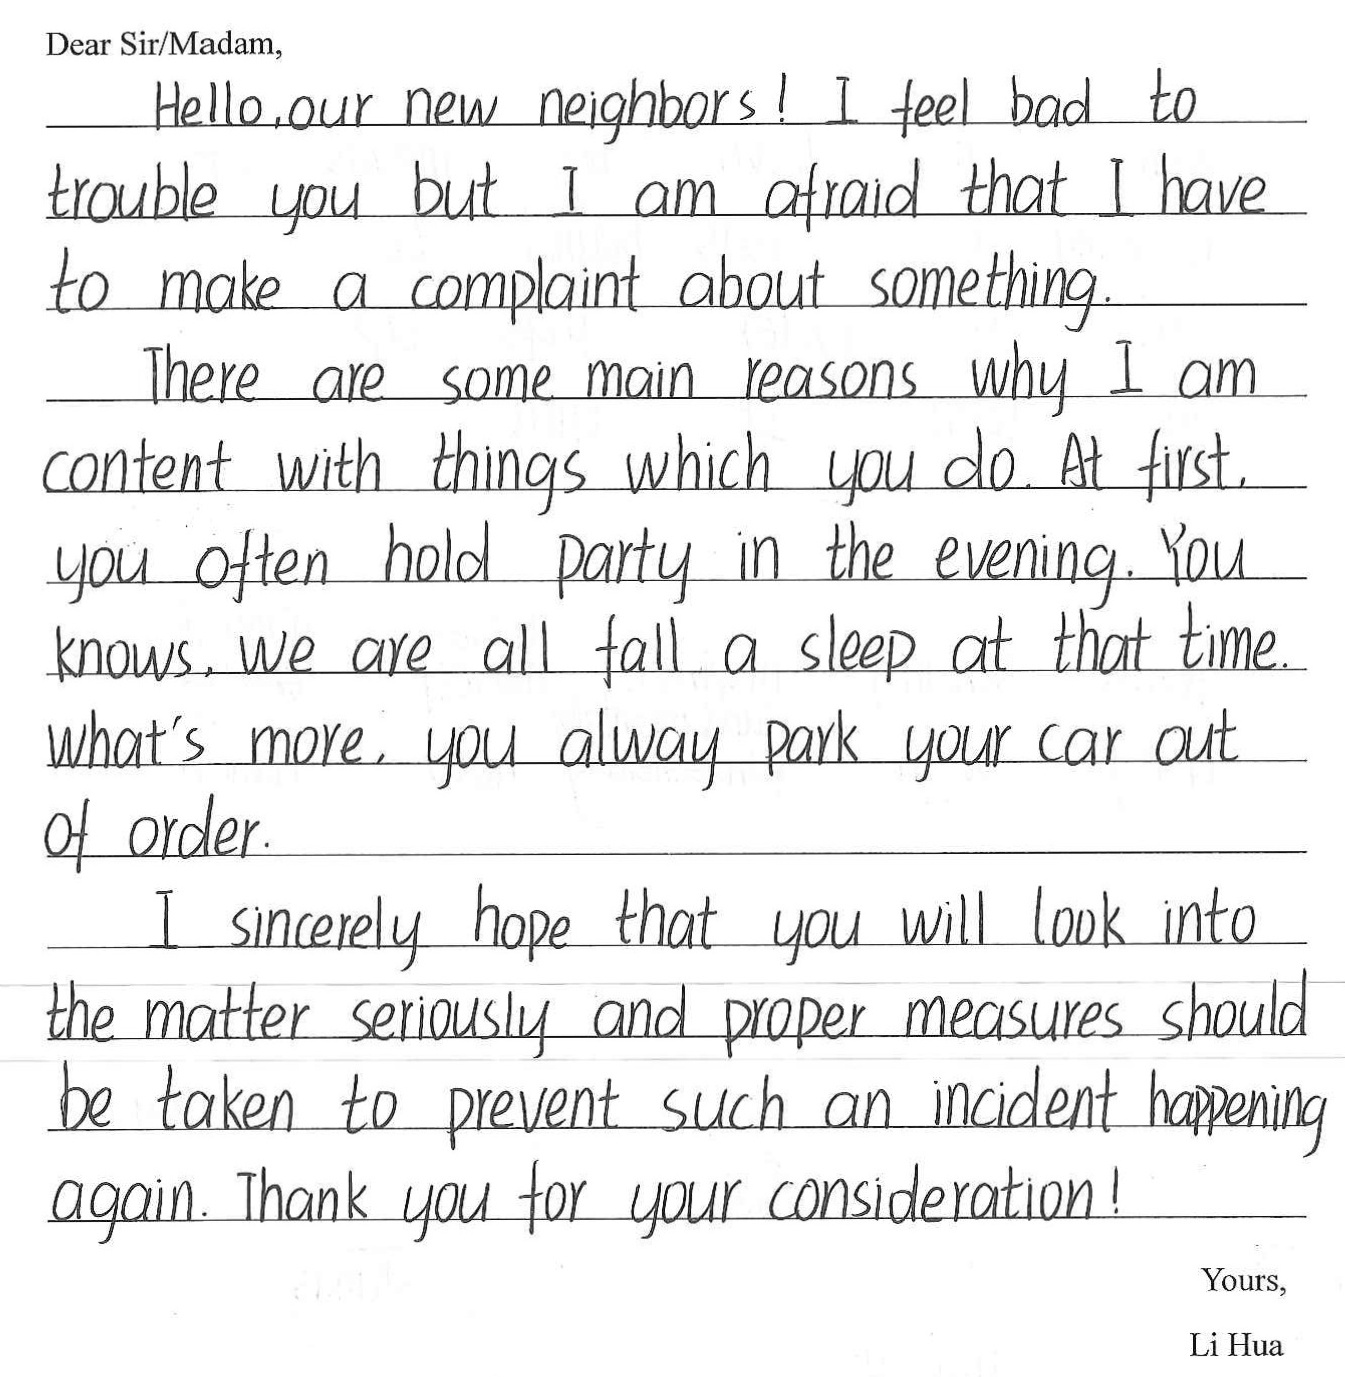 Dear Sir/Madam,
Hello, our new neighbors! I feel bad to
trouble you but I am afraid that I have
to make a complaint about something.
There are some main reasons why I am
content with things which you do. At first,
you often hold party in the evening. You
knows, we are all fall a sleep at that time.
what's more, you alway park your car out
of order.
I sincerely hope that you will look into
the matter seriously and proper measures should
be taken to prevent such an incident happening
again. Thank you for your consideration!
Yours,
Li Hua